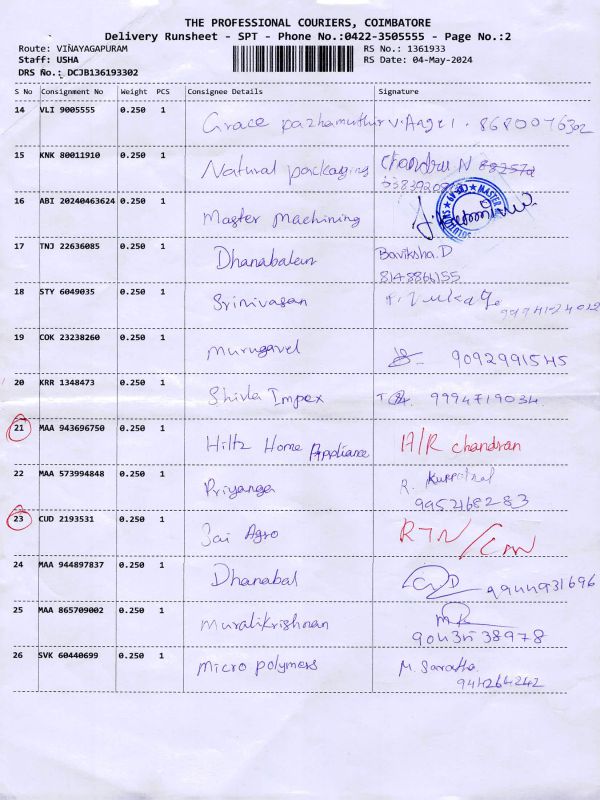 THE PROFESSIONAL COURIERS, COIMBATORE
Delivery Runsheet - SPT - Phone No.:0422-3505555 - Page No.:2
Route: VINAYAGAPURAM RS No.: 1361933
Staff: USHA RS Date: 04-May-2024
DRS No.: DCJB136193302
S No Consignment No Weight PCS Consignee Details Signature
14 VLI 9005555 0.250 1 Grace pazhamuthir V. Angel. 8680076302
15 KNK 80011910 0.250 1 Natural packaging Chandru N
16 ABI 20240463624 0.250 1 Master Machining
17 TNJ 22636085 0.250 1 Dhanabalan Baviksha.D
8148866155
18 STY 6049035 0.250 1 Srinivasan
19 COK 23238260 0.250 1 Murugavel 9092991545
20 KRR 1348473 0.250 1 Shivla Impex 9994719034.
21 MAA 943696750 0.250 1 Hiltz Home Appliance A/R chandran
22 MAA 573994848 0.250 1 Priyanga R.
9952168283
23 CUD 2193531 0.250 1 Jai Agro RTN/
24 MAA 944897837 0.250 1 Dhanabal 9944931696
25 MAA 865709002 0.250 1 Muralikrishnan
9043538978
26 SVK 60440699 0.250 1 Micro polymers M. Saratha
944264242